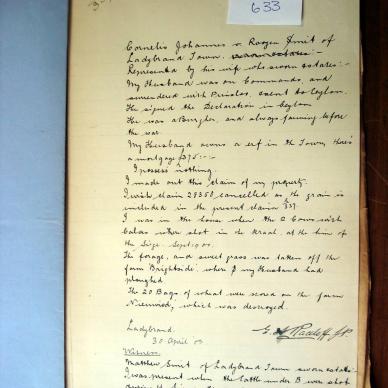 633
Cornelis Johannes v Rooyen Smit of
Ladybrand Town.
Represented by his wife who sworn states:-
My Husband was on Commando, and
surrendered with Prinsloo, & sent to Ceylon.
He signed the Declaration in Ceylon
He was a Burgher, and always farming before
the war.
My Husband owns a erf in the Town, there's
a mortgage £375:-:-
I possess nothing.
I made out this claim of my property.
I wish claim 29350 cancelled as the grain is
included in the present claim
I was in the house when the 2 Cows with
Calves when shot in the Kraal, at the time of
the Siege. Sept. 1900.
The forage, and sweet grass was taken off the
farm Brightside, where my Husband had
ploughed
The 20 Bags of wheat were stored on the farm
which was destroyed.
Ladybrand.
30 April 03
Witness.
Matthew Smit of Ladybrand Town sworn states:-
I was present when the Cattle under B were shot